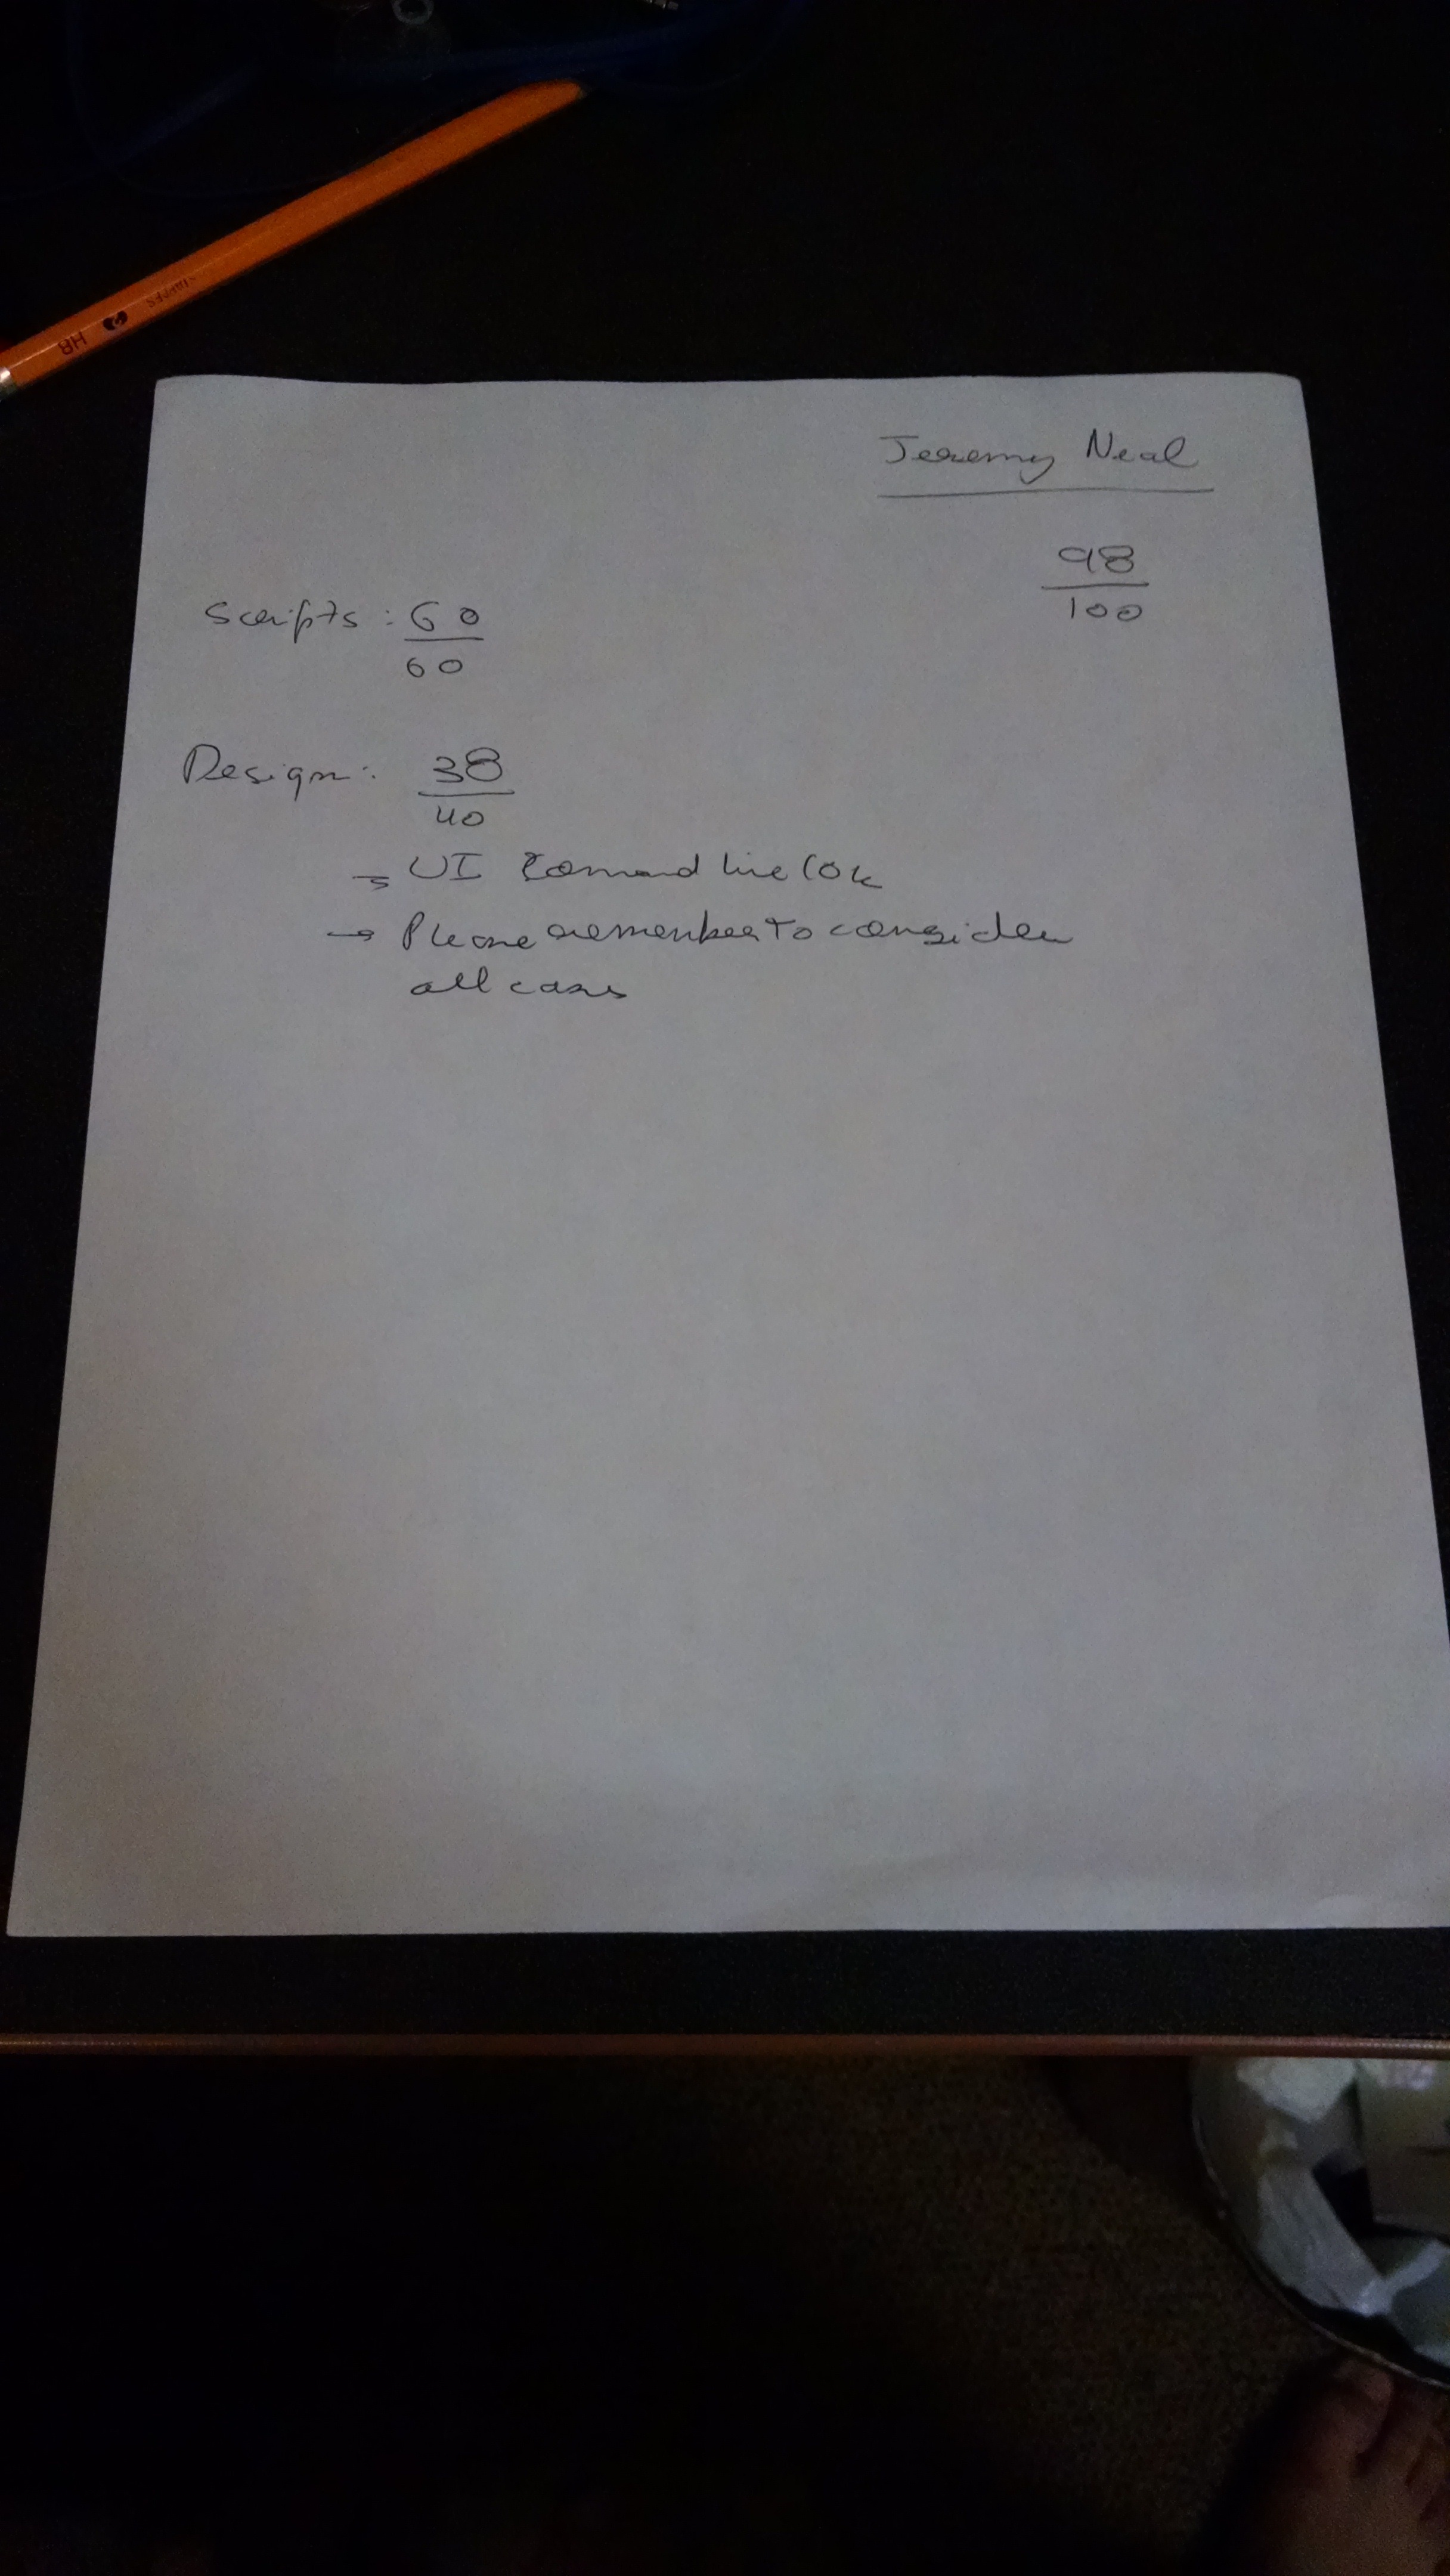 STAPLES HB
Jeremy Neal
98
100
Scripts: 60
60
Design: 38
40
→ UI Comand line (ok
→ Please remember to consider
all cases